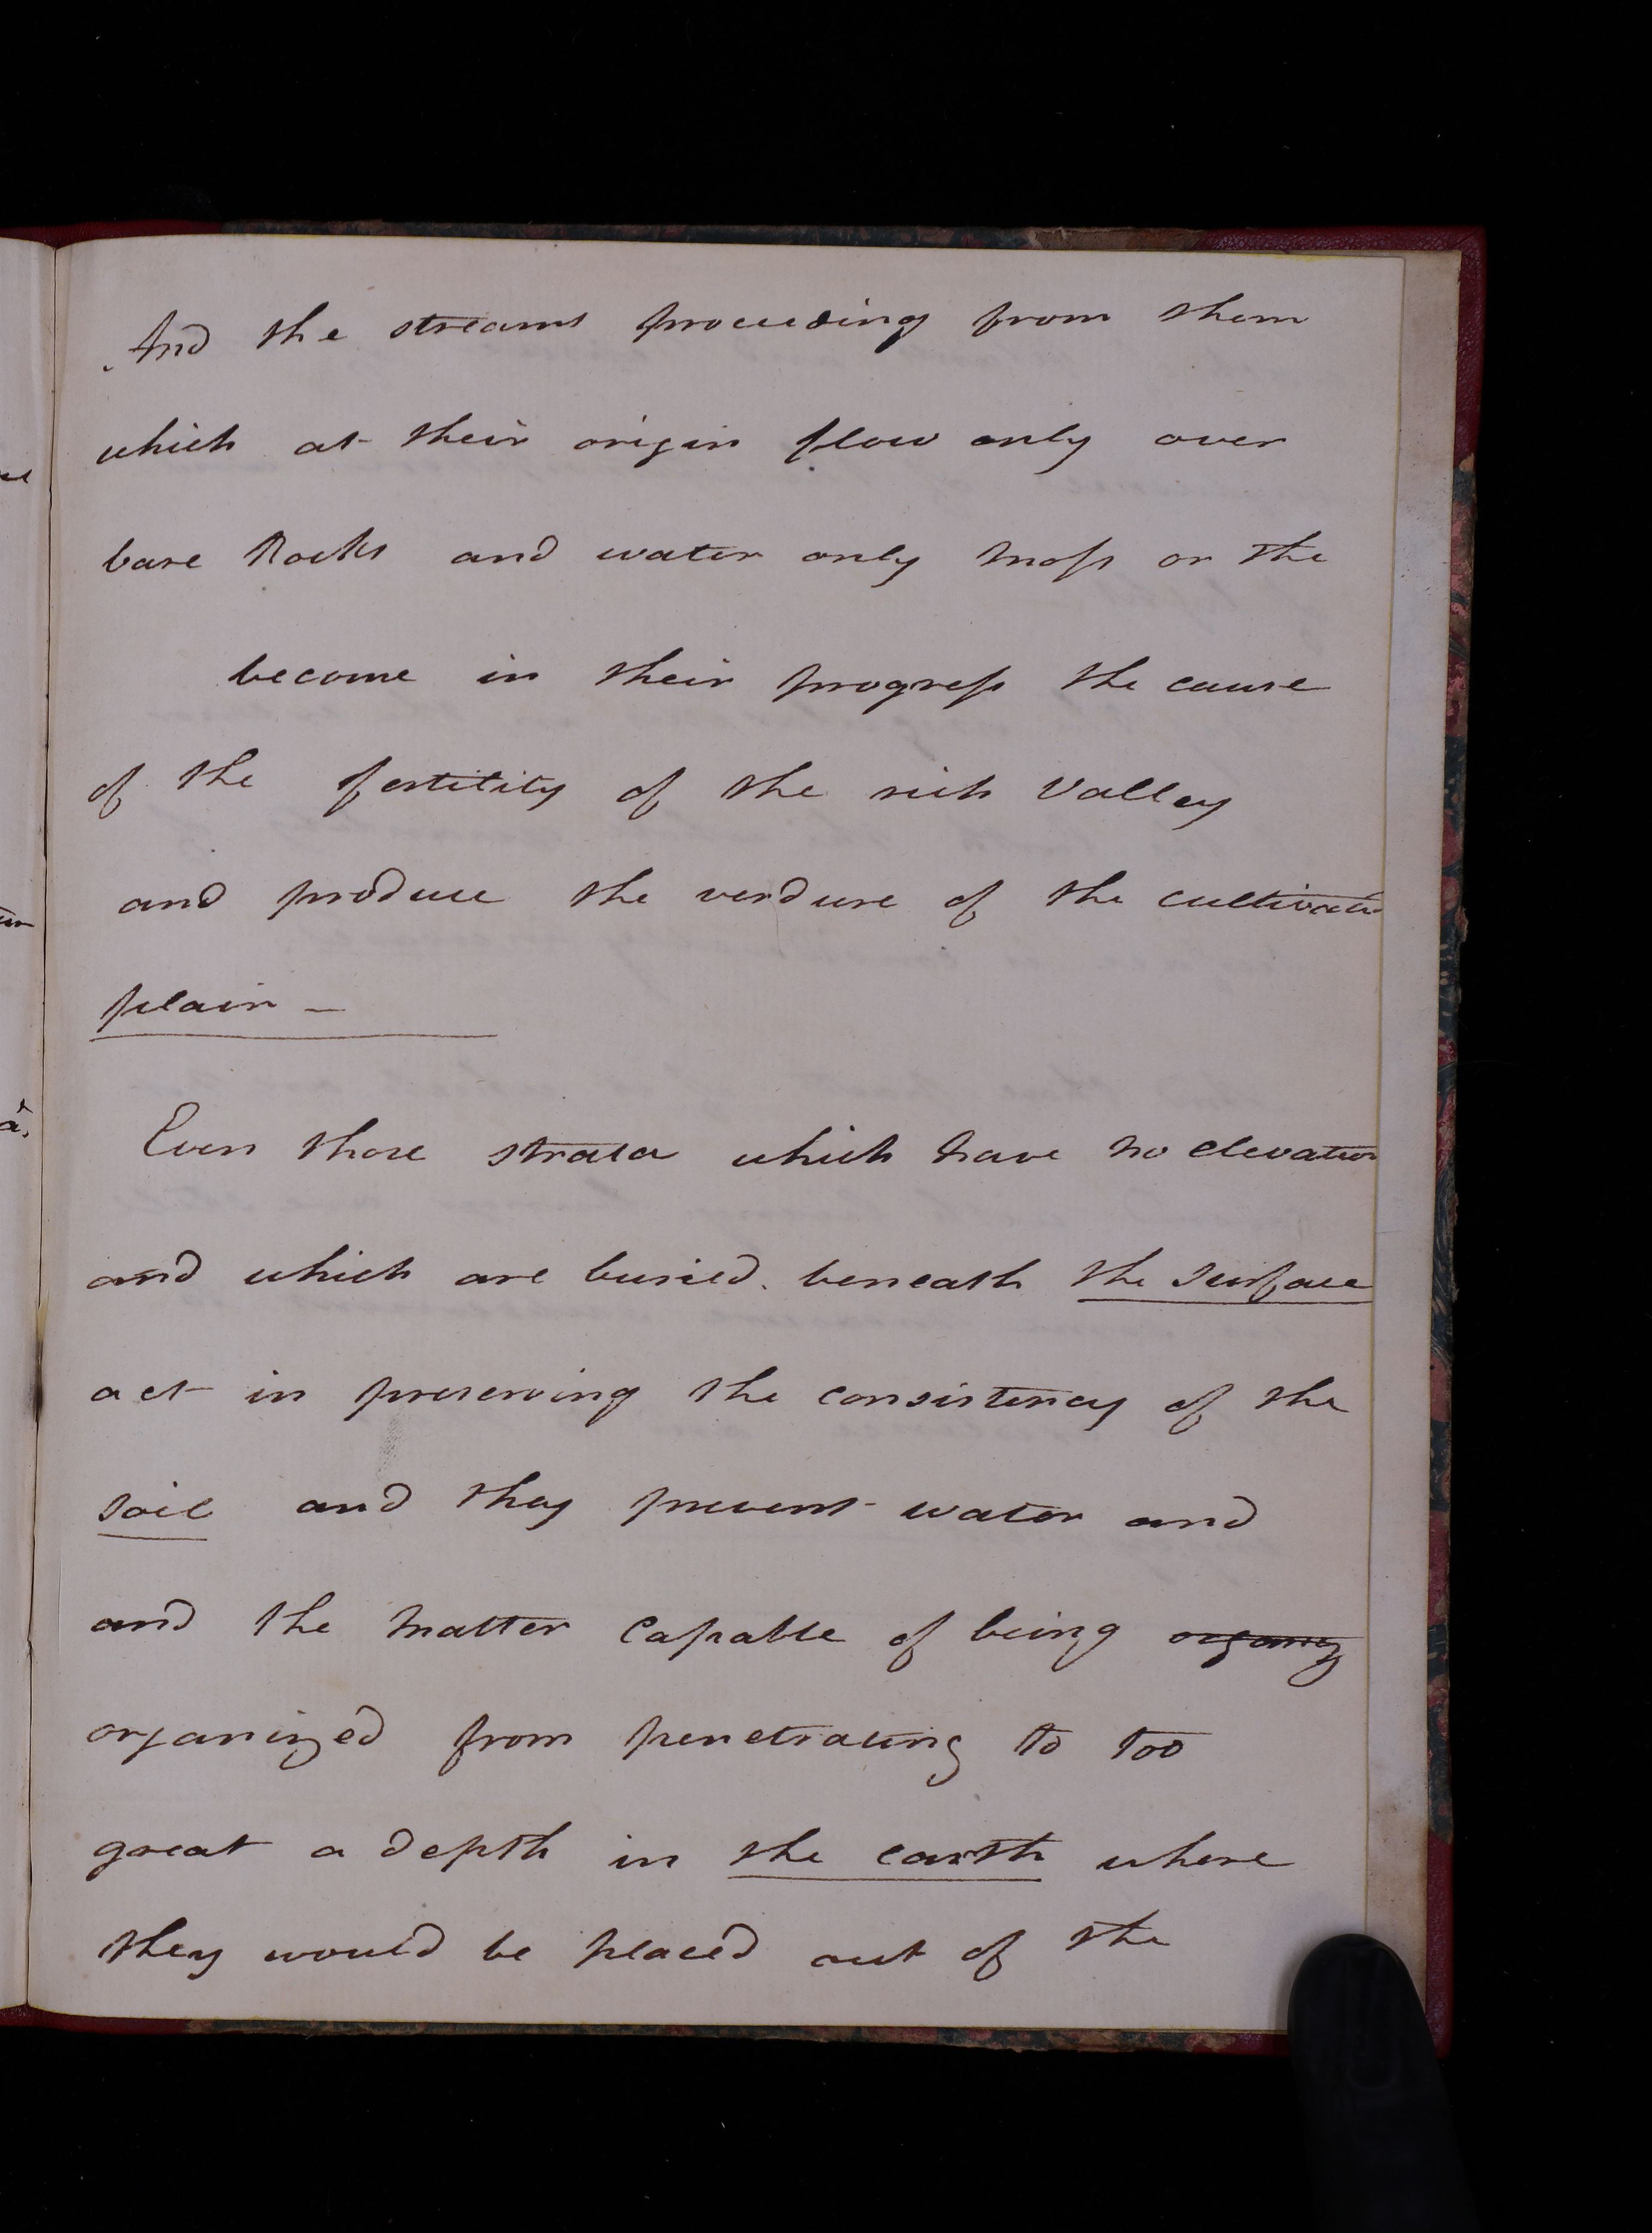 And the streams proceeding from them
which at their origin flow only over
bare Rocks and water only moss or the
become in their progress the cause
of the fertility of the rich Valley
and produce the verdure of the cultivated
plain –
Even those strata which have no elevation
and which are buried beneath the surface
act in preserving the consistency of the
soil and they prevent water and
and the matter capable of being organiz
organized from penetrating to too
great a depth in the earth where
they would be placed out of the